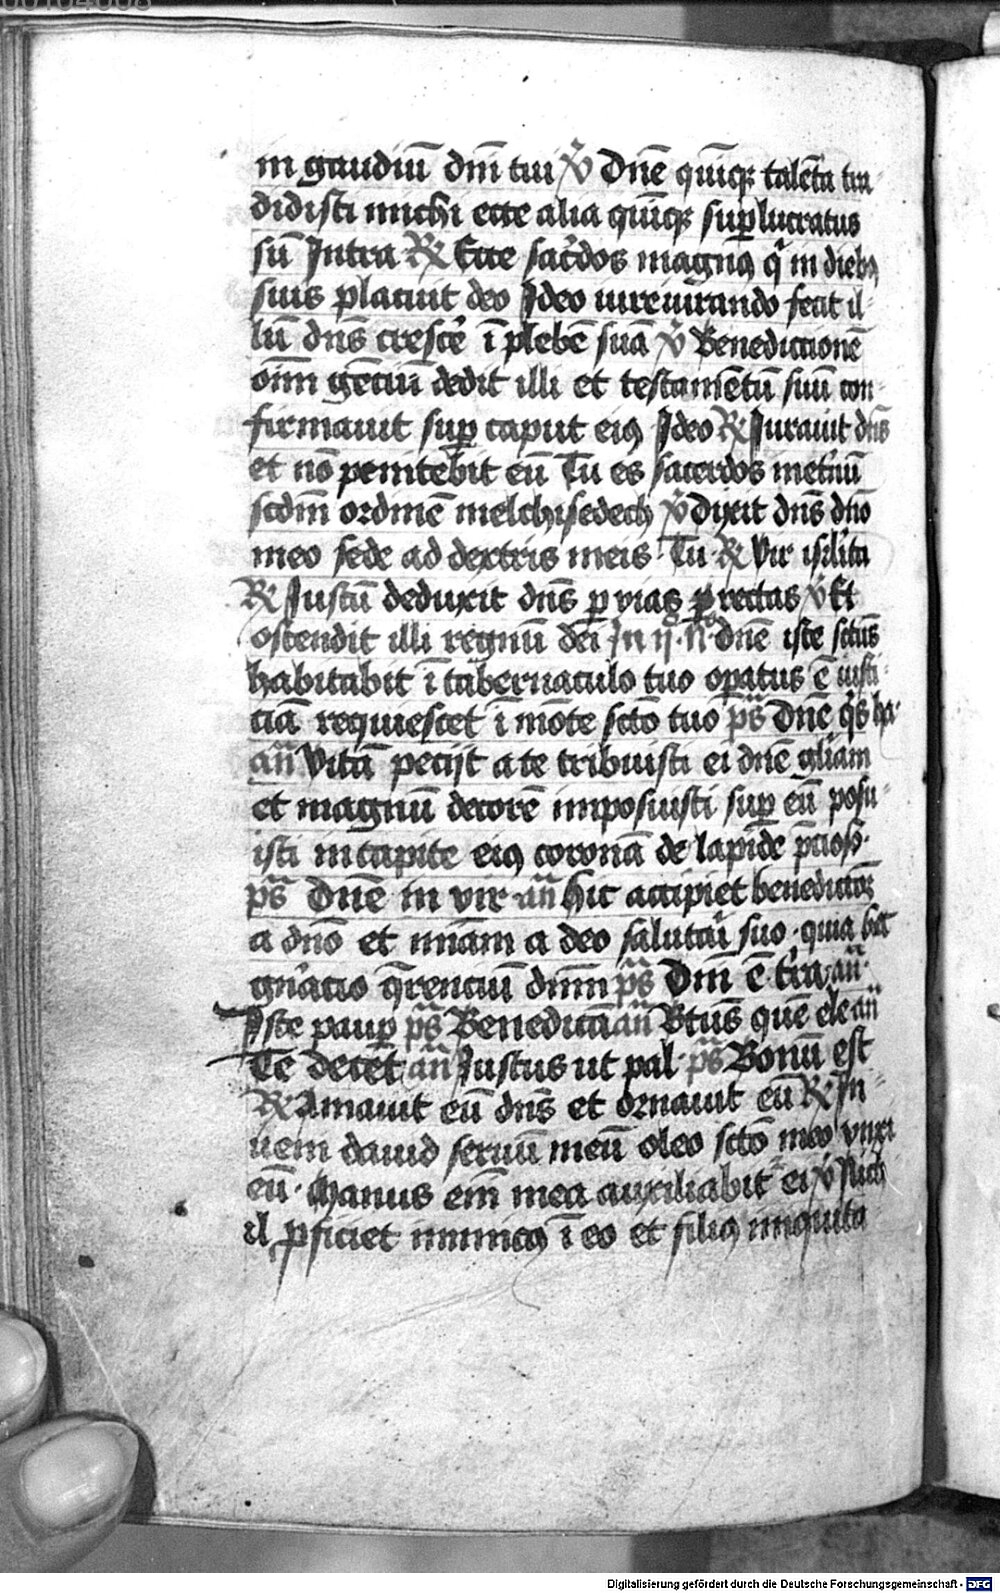 in gaudiū dn̄i tui ℣ Dn̄e quīqꝫ talēta tra
didisti michi ecce alia quīqꝫ suꝑlucratus
sū Intra ℟ Ecce sac̓dos magnꝰ q̇ in diebꝫ
suis placuit deo Ideo iureiurando fecit il-
lū dn̄s cresce̓ ī plebē suā ℣ Benedictionē
oīm gēciū dedit illi et testamētū suū con-
firmauit suꝑ caput eiꝰ Ideo ℟ Iurauit dn̄s
et nō penitebit eū Tu es sacerdos inet̓nū
scdm̄ ordinē melchisedech ℣ Dixit dn̄s dn̄o
meo sede ad dextris meis Tu ℟ Vir isrl̓ita
℟ Iustū deduxit dn̄s ꝑ vias ꝑ rectas ℣ Et
ostendit illi regnū dei In ij. N° dn̄e iste sctūs
habitabit ī tabernaculo tuo oꝑatus ē iusti-
ciā requiescet ī mōte sctō tuo ps̄ Dn̄e q̓s ha-
an̄ Vitā pecijt a te tribuisti ei dn̄e gl̓iam
et magnū decorē imposuisti suꝑ eū posu-
isti in capite eiꝰ coronā de lapide p̄cioso.
ps̄ Dn̄e in vir an̄ hic accipiet benedictōꝫ
a dn̄o et mīam a deo salutari suo quia hec
gn̓acio q̄renciū dn̄m ps̄ Dn̄i ē t̓ra an̄
Iste pauꝑ ps̄ Benedicā an̄ Btūs quē ele an̄
Te decet an̄ Iustus ut pal ps̄ Bonū est
℟ Amauit eū dn̄s et ornauit eū ℟ In-
ueni dauid seruū meū oleo sctō meo vnxi
eū. Manus em̄ mea auxiliabit̓ ei ℣ Nich
il ꝓficiet inimicꝰ ī eo et filiꝰ iniquita
Digitalisierung gefördert durch die Deutsche Forschungsgemeinschaft - DFG